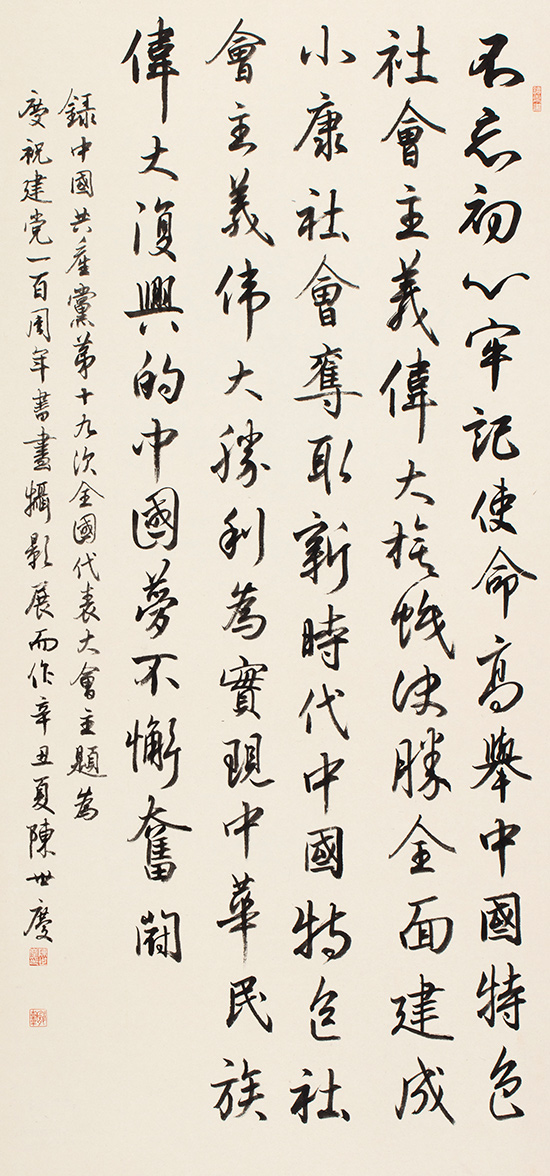 不忘初心牢記使命高舉中國特色
社會主義偉大旗幟決勝全面建成
小康社會奪取新時代中國特色社
會主義伟大勝利為實現中華民族
偉大復興的中國夢不懈奮鬪
録中國共產黨第十九次全國代表大會主題為
慶祝建党一百周年書畫攝影展而作辛丑夏陳世慶